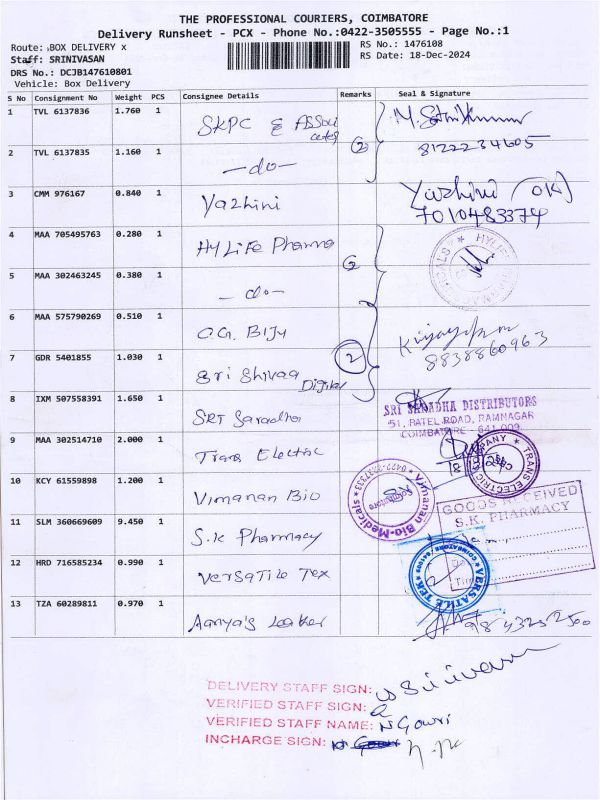 THE PROFESSIONAL COURIERS, COIMBATORE
Delivery Runsheet - PCX - Phone No.:0422-3505555 - Page No.:1
Route: BOX DELIVERY x
RS No.: 1476108
Staff: SRINIVASAN
RS Date: 18-Dec-2024
DRS No.: DCJB147610801
Vehicle: Box Delivery
S No Consignment No Weight PCS Consignee Details Remarks Seal & Signature
1 TVL 6137836 1.760 1 SKPC & Associates M. Sathikumar
2 TVL 6137835 1.160 1 -do- 2 8122234605
3 CMM 976167 0.840 1 Yazhini Yazhini (OK)
7010483374
4 MAA 705495763 0.280 1 HyLife Pharma
5 MAA 302463245 0.380 1 -do- 2
6 MAA 575790269 0.510 1 O.G. BIJU
7 GDR 5401855 1.030 1 Sri Shivaa Digital 2 8838860963
8 IXM 507558391 1.650 1 SRI Saradha
SRI SARADHA DISTRIBUTORS
51, PATEL ROAD, RAMNAGAR
COIMBATORE - 641 009
9 MAA 302514710 2.000 1 Trans Electric
TRANS ELECTRIC COMPANY
10 KCY 61559898 1.200 1 Vimanan Bio
Vimanan Bio-Medicals
Coimbatore
11 SLM 360669609 9.450 1 S.K Pharmacy
GOODS RECEIVED
S.K. PHARMACY
12 HRD 716585234 0.990 1 Versatile Tex
VERSATILE TEX
13 TZA 60289811 0.970 1 Aanya's
DELIVERY STAFF SIGN: Srinivasan
VERIFIED STAFF SIGN:
VERIFIED STAFF NAME: N Gowri
INCHARGE SIGN: